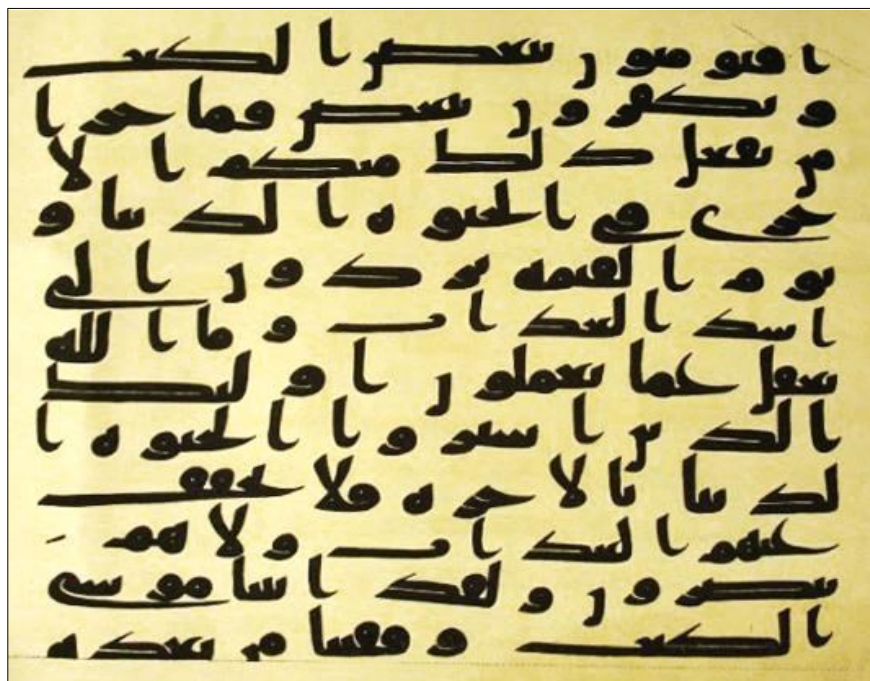 افتومنون ببعض الكتب
وتكفرون ببعض فما جزا
من يفعل ذلك منكم الا
خزي في الحيوة الدنيا و
يوم القيمة يردون الى
اشد العذاب وما الله
بغفل عما تعملون اولئك
الذين اشتروا الحيوة ا
لدنيا بالاخرة فلا يخفف
عنهم العذاب ولا هم
ينصرون ولقد اتينا موسى
الكتب وقفينا من بعده